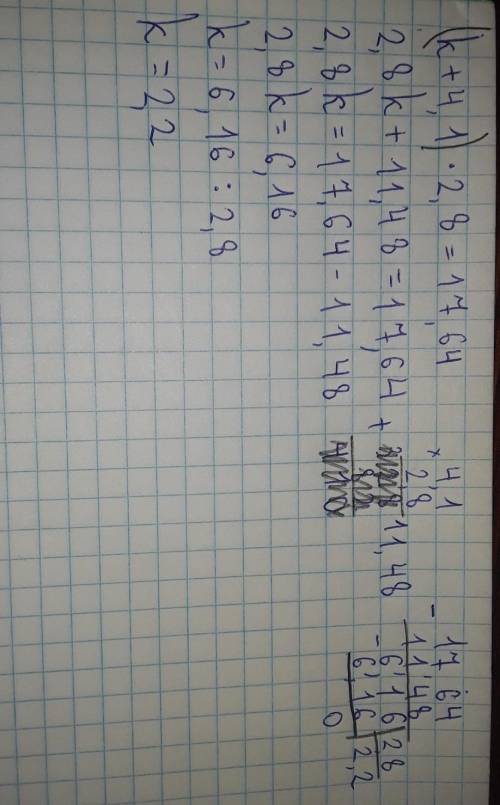 (k+4,1)·2,8=17,64
2,8k+11,48=17,64
2,8k=17,64-11,48
2,8k=6,16
k=6,16:2,8
k=2,2
× 4,1
2,8
+
11,48
- 17,64
11,48
6,16 | 28
- 6,16 | 2,2
0